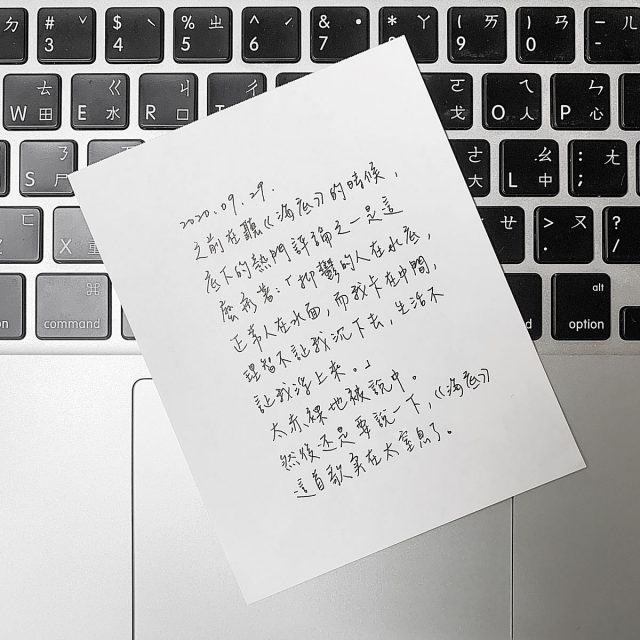 ㄉ # 3 ˇ $ 4 ˋ % 5 ㄓ ^ 6 ˊ & 7 ˙ * ㄚ ( 9 ㄞ ) 0 ㄢ - ㄦ
W ㄊ 田 E ㄍ 水 R ㄐ 口 ㄔ ㄛ 戈 O ㄟ 人 P ㄣ 心
S ㄋ 尸 ㄜ 大 L ㄠ 中 : ; ㄤ
ㄈ X ㄌ 重 ㄝ > . ㄡ ? / ㄥ
⌘ command alt option
2020.09.29.
之前在聽《海底》的時候,
底下的熱門評論之一是這
麼形著:「抑鬱的人在水底,
正常人在水面,而我卡在中間,
理智不讓我沉下去,生活不
讓我浮上來。」
太赤裸地被說中。
然後還是要說一下,《海底》
這首歌實在太窒息了。